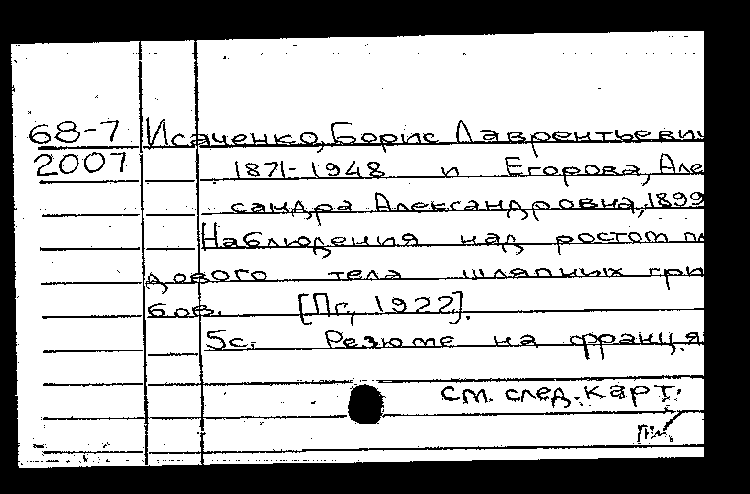 68-7 Исаченко, Борис Лаврентьевич
2007 1871-1948 и Егорова, Але
сандра Александровна, 1899
Наблюдения над ростом пл
дового тела шляпных гри
бов. [Пг, 1922].
5с. Резюме на франц.я
см. след. карт.